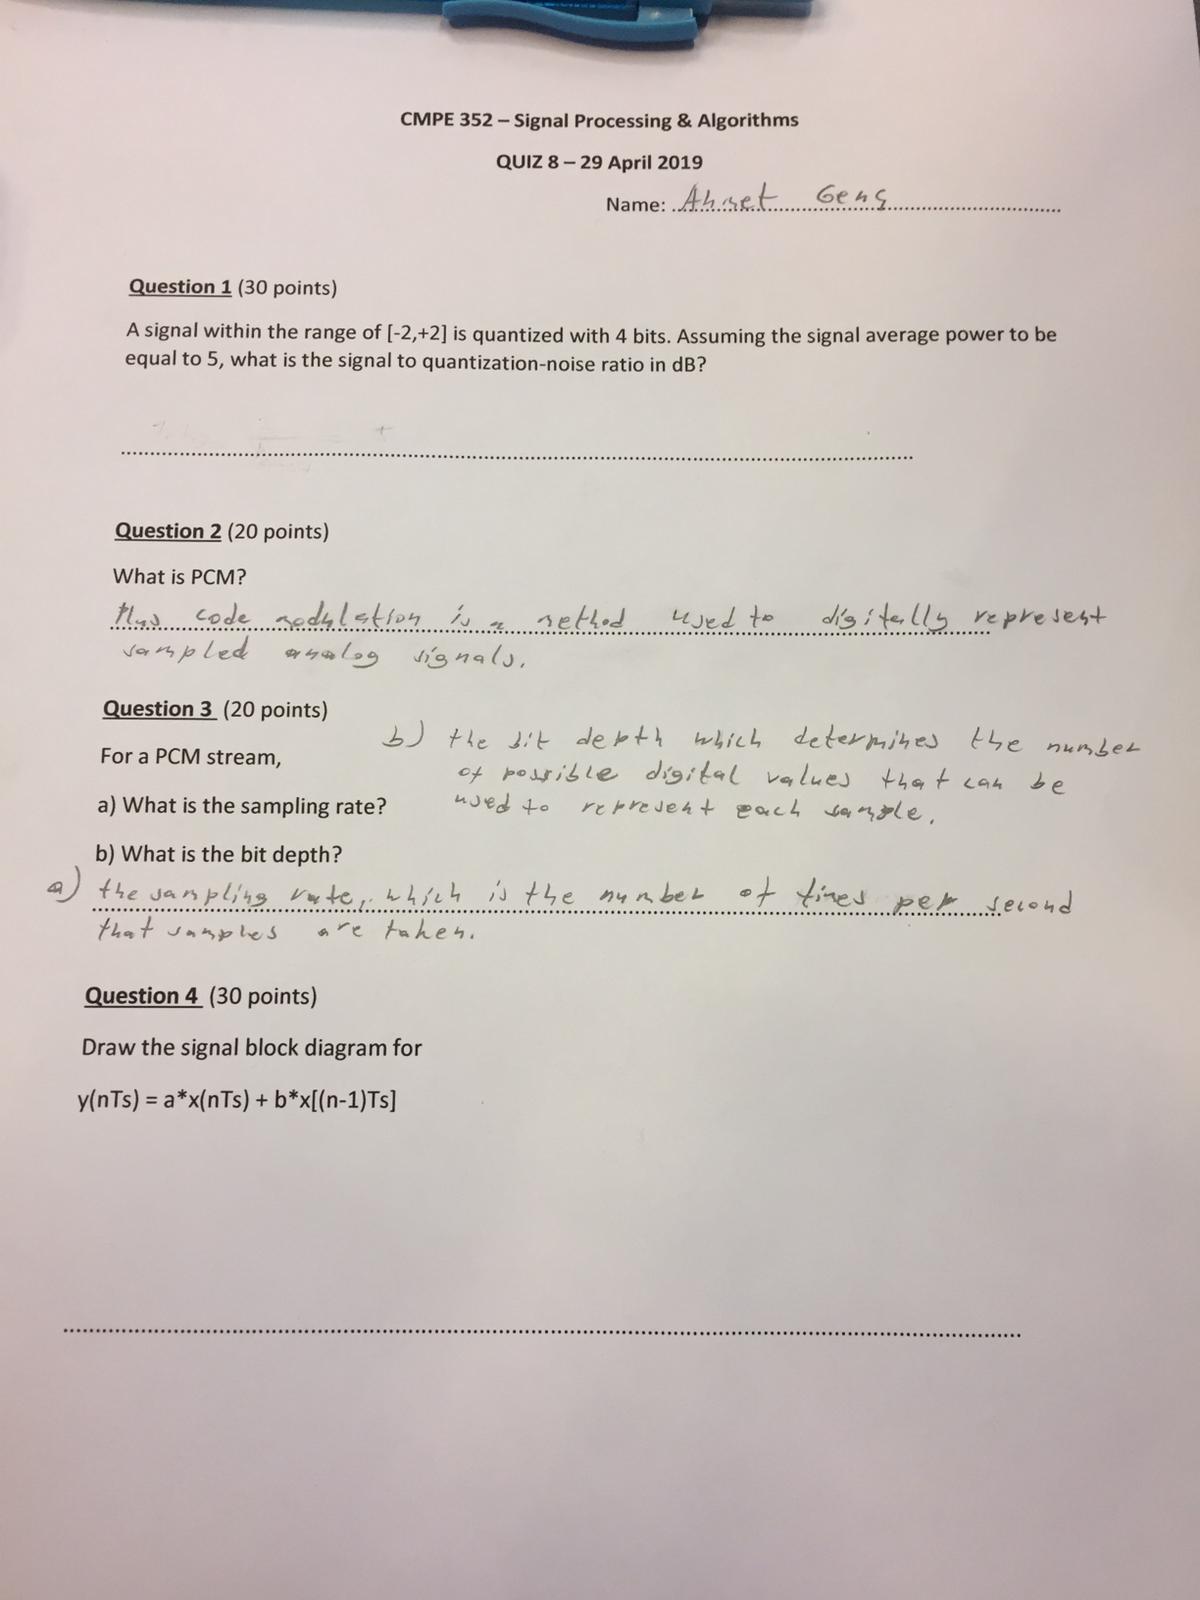 CMPE 352 – Signal Processing & Algorithms
QUIZ 8 – 29 April 2019
Name: Ahmet Genç
Question 1 (30 points)
A signal within the range of [-2,+2] is quantized with 4 bits. Assuming the signal average power to be
equal to 5, what is the signal to quantization-noise ratio in dB?
Question 2 (20 points)
What is PCM?
code modulation is a method used to digitally represent
sampled analog signals.
Question 3 (20 points)
b) the bit depth which determines the number
For a PCM stream,
of possible digital values that can be
a) What is the sampling rate?
used to represent each sample.
b) What is the bit depth?
a) the sampling rate, which is the number of times per second
that samples are taken.
Question 4 (30 points)
Draw the signal block diagram for
y(nTs) = a*x(nTs) + b*x[(n-1)Ts]